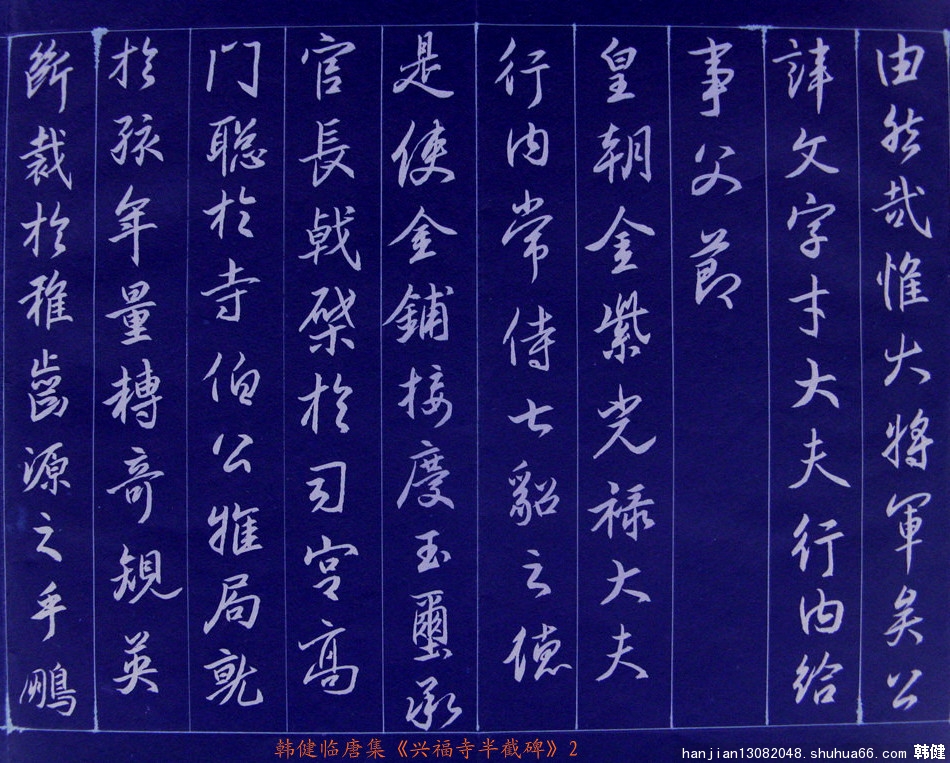 由然哉惟大将軍矣公
諱文字才大夫行内给
事父節
皇朝金紫光禄大夫
行内常侍七貂之德
是使金鋪接慶玉璽承
官長戟棨於司宫高
门聪於寺伯公雅局
於孩年量轉奇規英
断裁於稚齒源之乎鵬
韩健临唐集《兴福寺半截碑》2
hanjian13082048.shuhua66.com 韩健